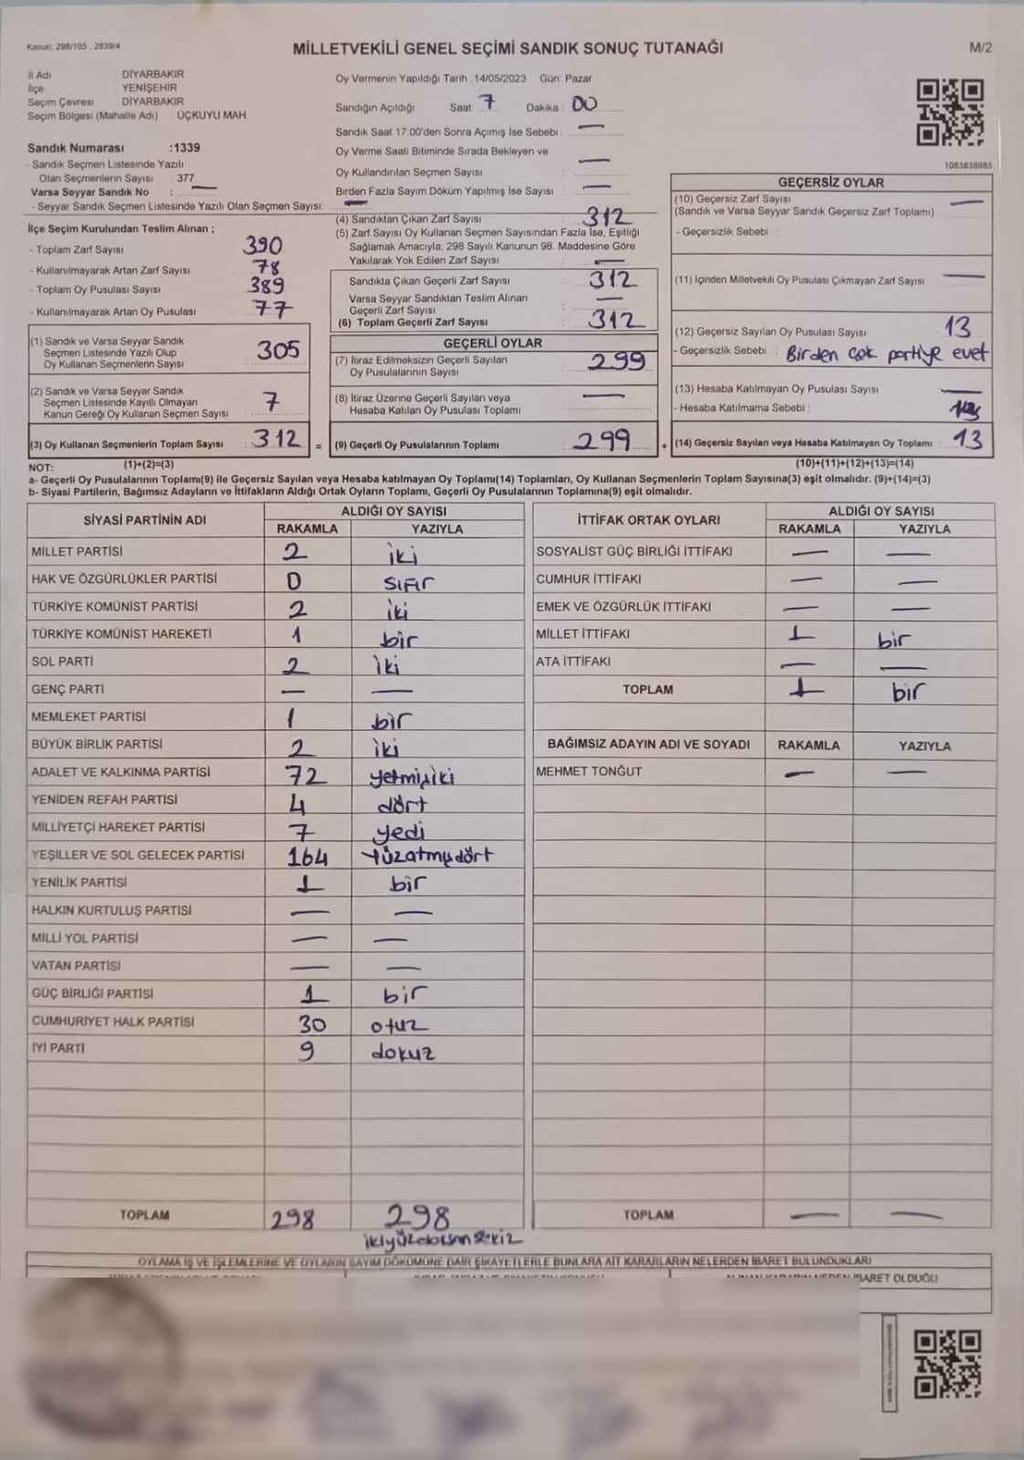 Kanun: 298/105 , 2839/4
MİLLETVEKİLİ GENEL SEÇİMİ SANDIK SONUÇ TUTANAĞI
M/2
İl Adı DİYARBAKIR
İlçe YENİŞEHİR
Seçim Çevresi DİYARBAKIR
Seçim Bölgesi (Mahalle Adı) ÜÇKUYU MAH
Sandık Numarası :1339
- Sandık Seçmen Listesinde Yazılı
Olan Seçmenlerin Sayısı 377
Varsa Seyyar Sandık No : —
- Seyyar Sandık Seçmen Listesinde Yazılı Olan Seçmen Sayısı: —
İlçe Seçim Kurulundan Teslim Alınan ;
- Toplam Zarf Sayısı 390
- Kullanılmayarak Artan Zarf Sayısı 78
- Toplam Oy Pusulası Sayısı 389
- Kullanılmayarak Artan Oy Pusulası 77
(1) Sandık ve Varsa Seyyar Sandık
Seçmen Listesinde Yazılı Olup
Oy Kullanan Seçmenlerin Sayısı 305
(2) Sandık ve Varsa Seyyar Sandık
Seçmen Listesinde Kayıtlı Olmayan
Kanun Gereği Oy Kullanan Seçmen Sayısı 7
(3) Oy Kullanan Seçmenlerin Toplam Sayısı 312 =
Oy Vermenin Yapıldığı Tarih :14/05/2023 Gün: Pazar
Sandığın Açıldığı Saat: 7 Dakika : 00
Sandık Saat 17.00'den Sonra Açımış İse Sebebi : —
Oy Verme Saati Bitiminde Sırada Bekleyen ve
Oy Kullandırılan Seçmen Sayısı : —
Birden Fazla Sayım Döküm Yapılmış İse Sayısı : —
(4) Sandıktan Çıkan Zarf Sayısı 312
(5) Zarf Sayısı Oy Kullanan Seçmen Sayısından Fazla İse, Eşitliği
Sağlamak Amacıyla; 298 Sayılı Kanunun 98. Maddesine Göre
Yakılarak Yok Edilen Zarf Sayısı : —
Sandıkla Çıkan Geçerli Zarf Sayısı : 312
Varsa Seyyar Sandıktan Teslim Alınan
Geçerli Zarf Sayısı : —
(6) Toplam Geçerli Zarf Sayısı : 312
GEÇERLİ OYLAR
(7) İtiraz Edilmeksizin Geçerli Sayılan
Oy Pusulalarının Sayısı : 299
(8) İtiraz Üzerine Geçerli Sayılan veya
Hesaba Katılan Oy Pusulası Toplamı : —
(9) Geçerli Oy Pusulalarının Toplamı : 299 +
1083838985
GEÇERSİZ OYLAR
(10) Geçersiz Zarf Sayısı —
(Sandık ve Varsa Seyyar Sandık Geçersiz Zarf Toplamı)
- Geçersizlik Sebebi :
(11) İçinden Milletvekili Oy Pusulası Çıkmayan Zarf Sayısı —
(12) Geçersiz Sayılan Oy Pusulası Sayısı 13
- Geçersizlik Sebebi : Birden çok partiye evet
(13) Hesaba Katılmayan Oy Pusulası Sayısı —
- Hesaba Katılmama Sebebi :
(14) Geçersiz Sayılan veya Hesaba Katılmayan Oy Toplamı : 13
NOT: (1)+(2)=(3) (10)+(11)+(12)+(13)=(14)
a- Geçerli Oy Pusulalarının Toplamı(9) ile Geçersiz Sayılan veya Hesaba katılmayan Oy Toplamı(14) Toplamları, Oy Kullanan Seçmenlerin Toplam Sayısına(3) eşit olmalıdır. (9)+(14)=(3)
b- Siyasi Partilerin, Bağımsız Adayların ve İttifakların Aldığı Ortak Oyların Toplamı, Geçerli Oy Pusulalarının Toplamına(9) eşit olmalıdır.
SİYASİ PARTİNİN ADI ALDIĞI OY SAYISI
RAKAMLA YAZIYLA
MİLLET PARTİSİ 2 iki
HAK VE ÖZGÜRLÜKLER PARTİSİ 0 sıfır
TÜRKİYE KOMÜNİST PARTİSİ 2 iki
TÜRKİYE KOMÜNİST HAREKETİ 1 bir
SOL PARTİ 2 iki
GENÇ PARTİ — —
MEMLEKET PARTİSİ 1 bir
BÜYÜK BİRLİK PARTİSİ 2 iki
ADALET VE KALKINMA PARTİSİ 72 yetmişiki
YENİDEN REFAH PARTİSİ 4 dört
MİLLİYETÇİ HAREKET PARTİSİ 7 yedi
YEŞİLLER VE SOL GELECEK PARTİSİ 164 yüzatmışdört
YENİLİK PARTİSİ 1 bir
HALKIN KURTULUŞ PARTİSİ — —
MİLLİ YOL PARTİSİ — —
VATAN PARTİSİ — —
GÜÇ BİRLİĞİ PARTİSİ 1 bir
CUMHURİYET HALK PARTİSİ 30 otuz
İYİ PARTİ 9 dokuz
TOPLAM 298 298
ikiyüzdoksansekiz
İTTİFAK ORTAK OYLARI ALDIĞI OY SAYISI
RAKAMLA YAZIYLA
SOSYALİST GÜÇ BİRLİĞİ İTTİFAKI — —
CUMHUR İTTİFAKI — —
EMEK VE ÖZGÜRLÜK İTTİFAKI — —
MİLLET İTTİFAKI 1 bir
ATA İTTİFAKI — —
TOPLAM 1 bir
BAĞIMSIZ ADAYIN ADI VE SOYADI RAKAMLA YAZIYLA
MEHMET TONĞUT — —
TOPLAM — —
OYLAMA İŞ VE İŞLEMLERİNE VE OYLARIN SAYIM DÖKÜMÜNE DAİR ŞİKAYETLERLE BUNLARA AİT KARARLARIN NELERDEN İBARET BULUNDUKLARI
İBARET OLDUĞU